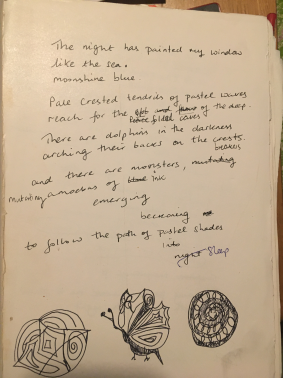 The night has painted my window
like the sea.
moonshine blue.
Pale crested tendrils of pastel waves
reach for the soft and flower of the deep.
folded caves
There are dolphins in the darkness
arching their backs on the crests.
beaches
and there are monsters, mutating
mutating amoebas of ink
emerging
beckoning
to follow the path of pastel shades
into
night sleep